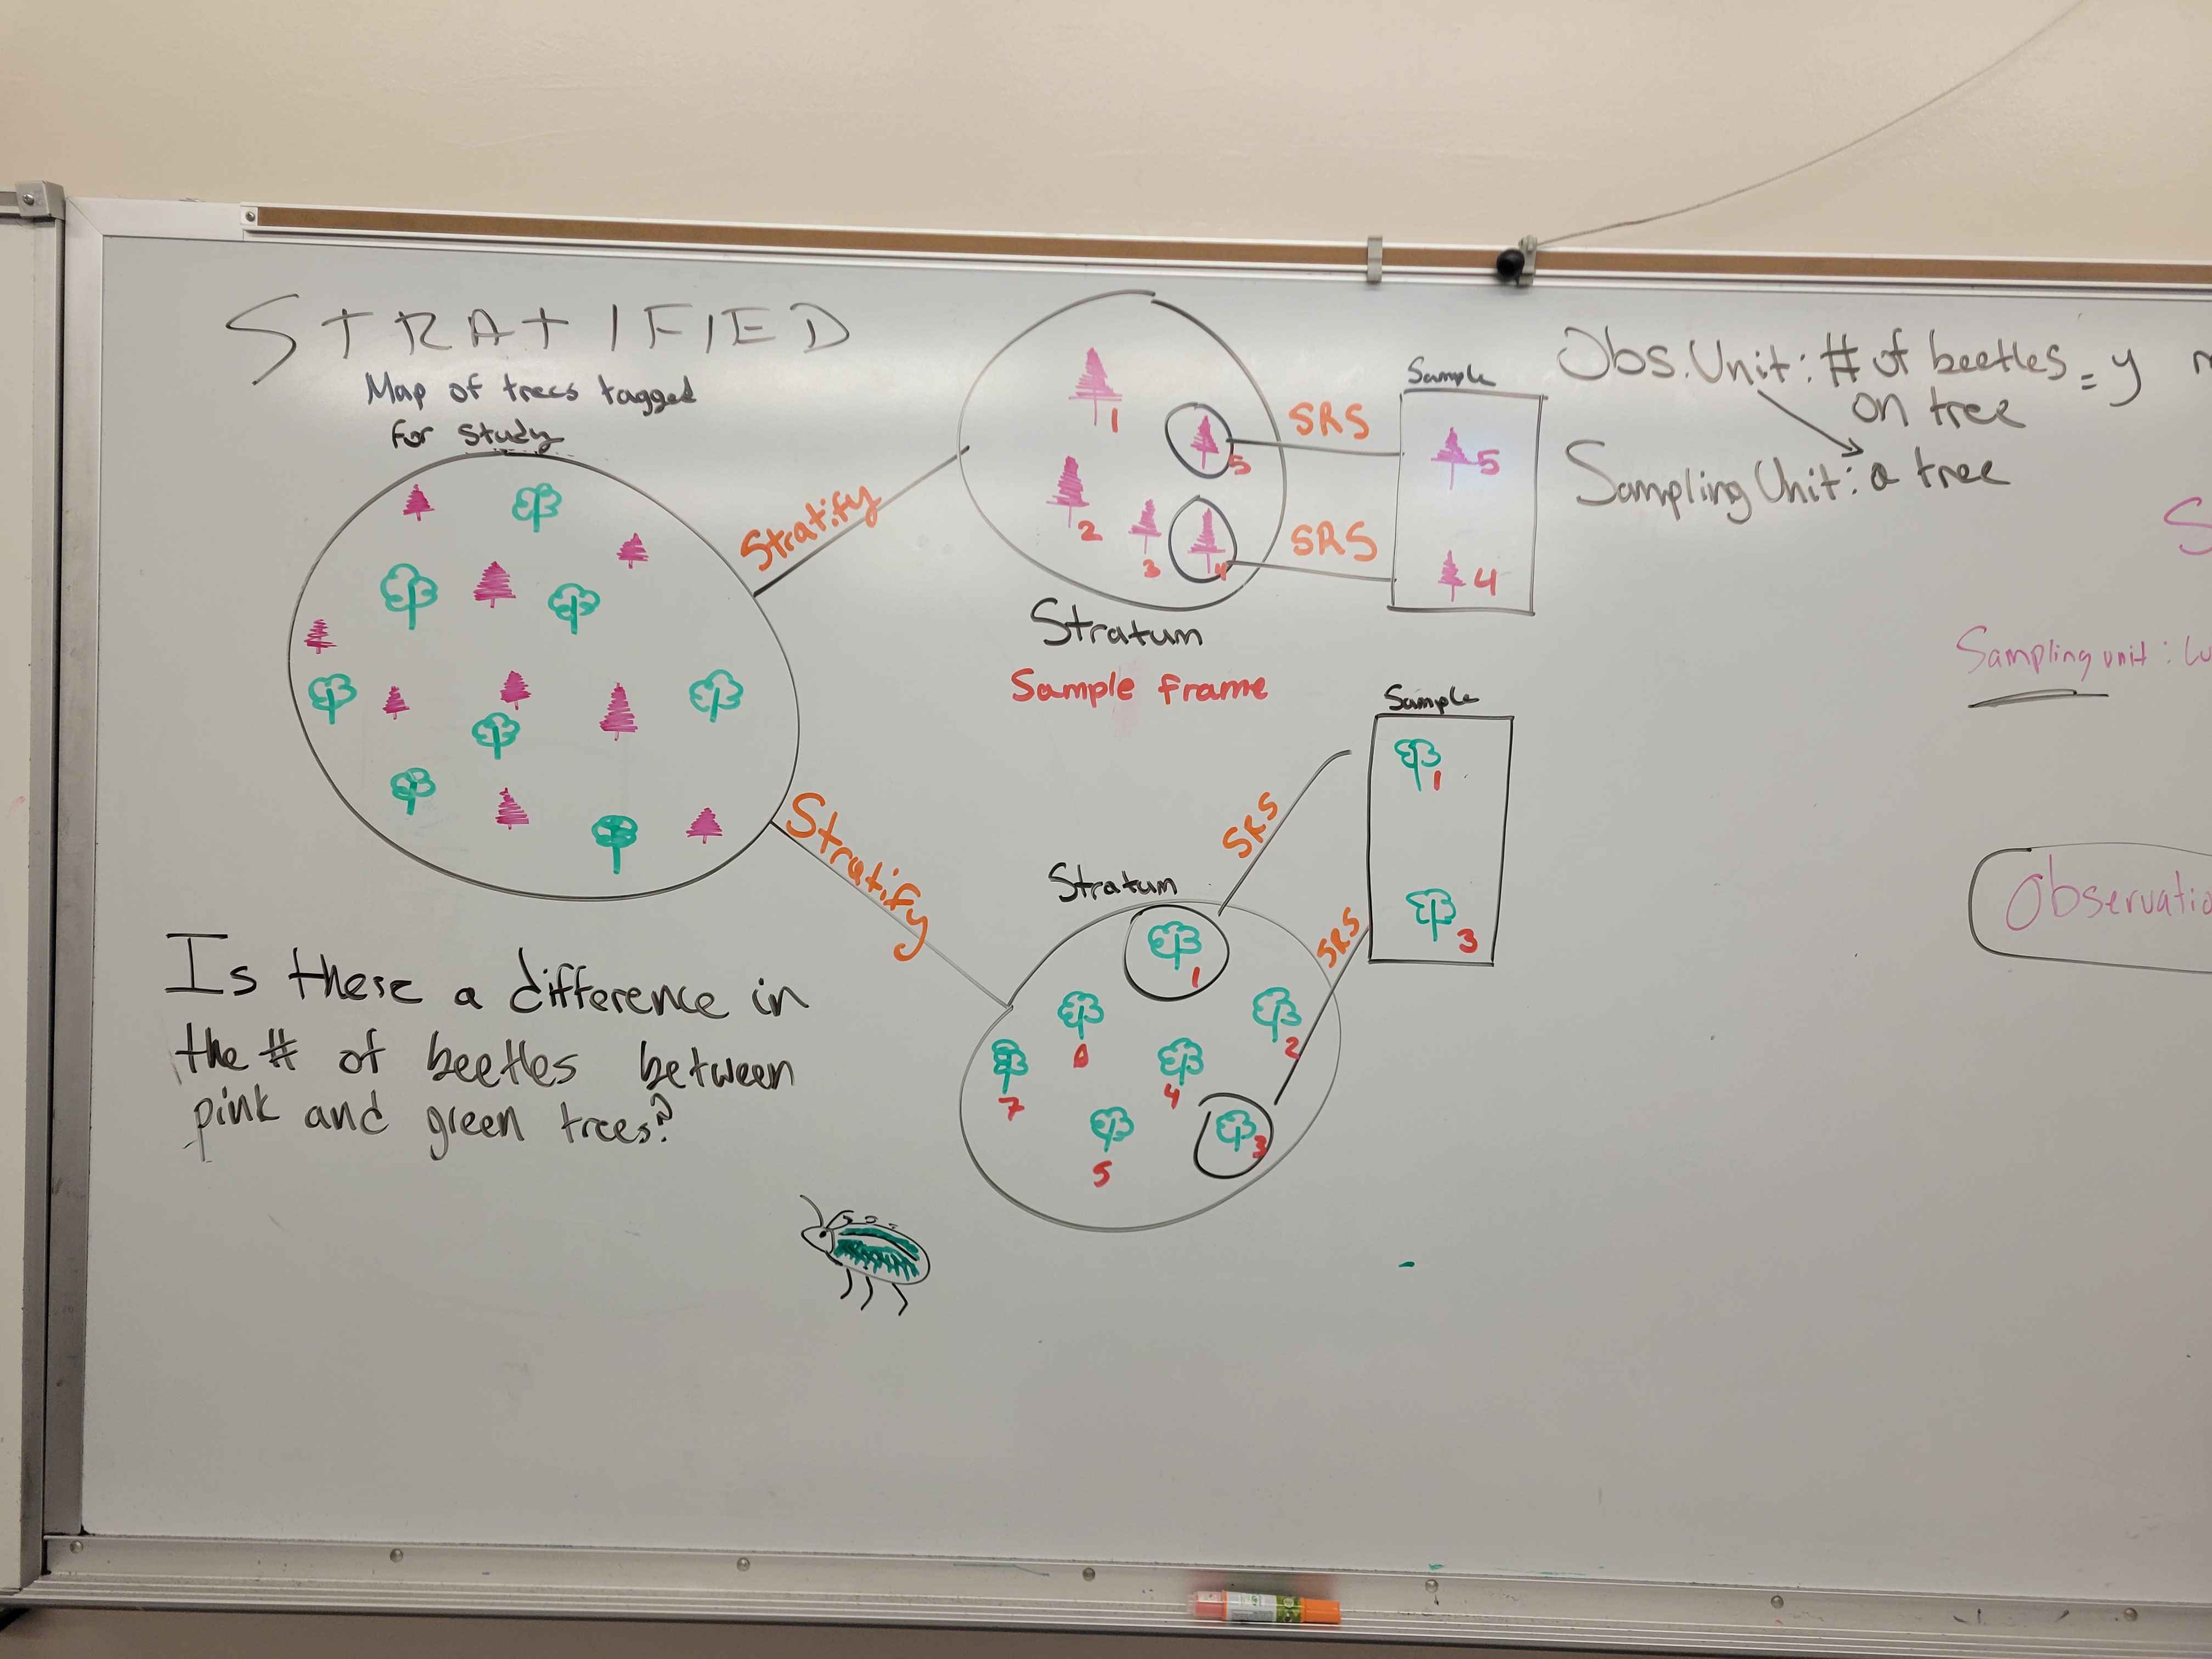 STRATIFIED
Map of trees tagged
for study
Stratify
1
5
2
3
4
SRS
SRS
Sample
5
4
Stratum
Sample frame
Obs. Unit: # of beetles = y
on tree
Sampling Unit: a tree
S
Sampling unit:
Observatio
Stratify
Stratum
SRS
SRS
Sample
1
3
1
2
7
4
3
5
Is there a difference in
the # of beetles between
pink and green trees?